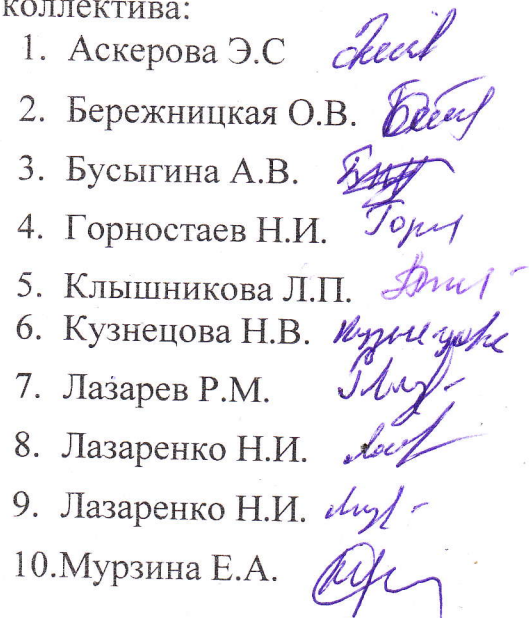 коллектива:
1. Аскерова Э.С
2. Бережницкая О.В.
3. Бусыгина А.В.
4. Горностаев Н.И.
5. Клышникова Л.П.
6. Кузнецова Н.В.
7. Лазарев Р.М.
8. Лазаренко Н.И.
9. Лазаренко Н.И.
10.Мурзина Е.А.